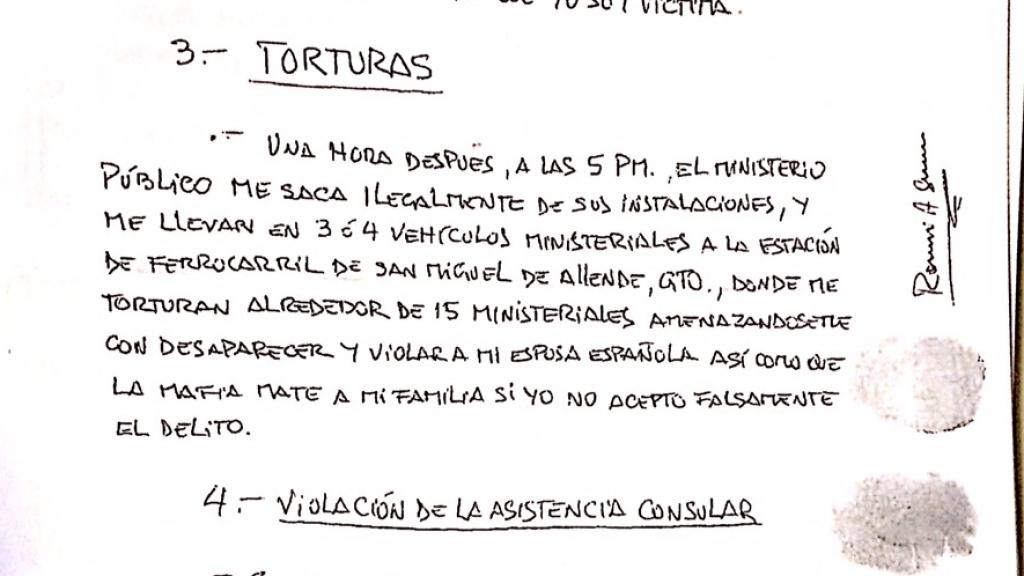 YO SOY VICTIMA.
3.- TORTURAS
.- UNA HORA DESPUÉS, A LAS 5 PM., EL MINISTERIO
PÚBLICO ME SACA ILEGALMENTE DE SUS INSTALACIONES, Y
ME LLEVAN EN 3 Ó 4 VEHÍCULOS MINISTERIALES A LA ESTACIÓN
DE FERROCARRIL DE SAN MIGUEL DE ALLENDE, GTO., DONDE ME
TORTURAN ALREDEDOR DE 15 MINISTERIALES AMENAZANDOSEME
CON DESAPARECER Y VIOLAR A MI ESPOSA ESPAÑOLA ASÍ COMO QUE
LA MAFIA MATE A MI FAMILIA SI YO NO ACEPTO FALSAMENTE
EL DELITO.
4.- VIOLACIÓN DE LA ASISTENCIA CONSULAR